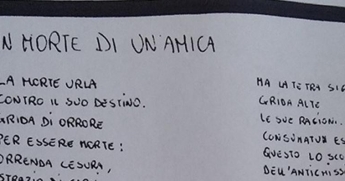 N MORTE DI UN'AMICA
LA MORTE URLA
CONTRO IL SUO DESTINO.
GRIDA DI ORRORE
PER ESSERE MORTE:
ORRENDA CESURA,
MA LA TETRA
GRIDA ALTE
LE SUE RAGIONI.
CONSUMATUM ES
QUESTO LO SCO
DELL'ANTICHISS